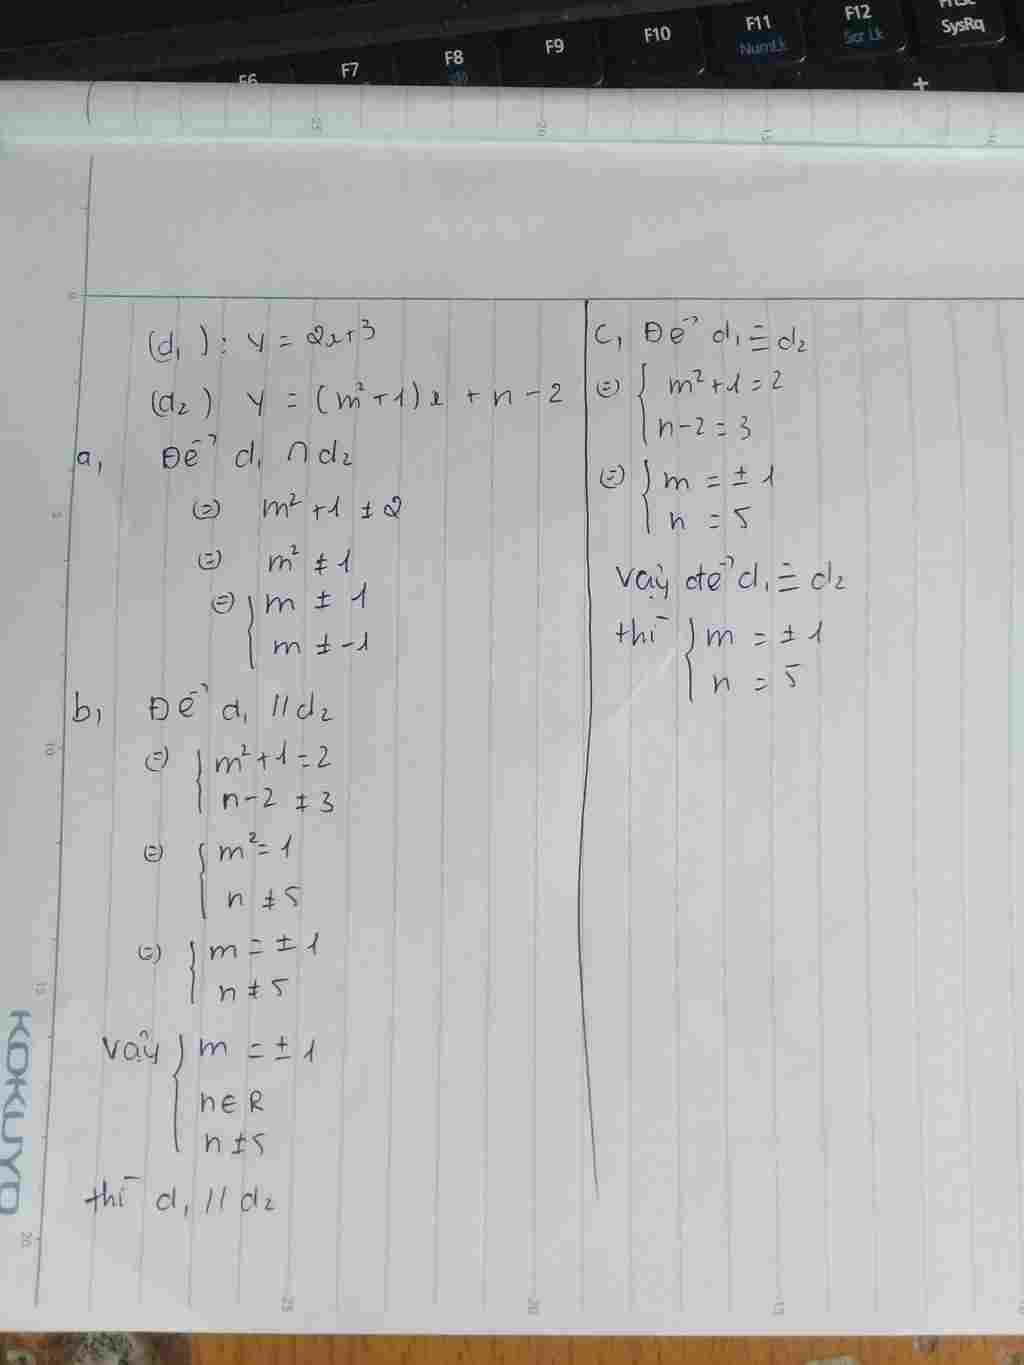 F6 F7 F8 F9 F10 F11 F12
NumLk Scr Lk SysRq
(d₁): y = 2x+3
(d₂) y = (m²+1)x + n - 2
a, Để d₁ ∩ d₂
(=) m²+1 ≠ 2
(=) m² ≠ 1
(=) { m ≠ 1
m ≠ -1
b, Để d₁ // d₂
(=) { m²+1 = 2
n-2 ≠ 3
(=) { m² = 1
n ≠ 5
(=) { m = ± 1
n ≠ 5
Vậy { m = ± 1
n ∈ R
n ≠ 5
thì d₁ // d₂
C, Để d₁ ≡ d₂
(=) { m²+1 = 2
n-2 = 3
(=) { m = ± 1
n = 5
Vậy để d₁ ≡ d₂
thì { m = ± 1
n = 5
KOKUYO